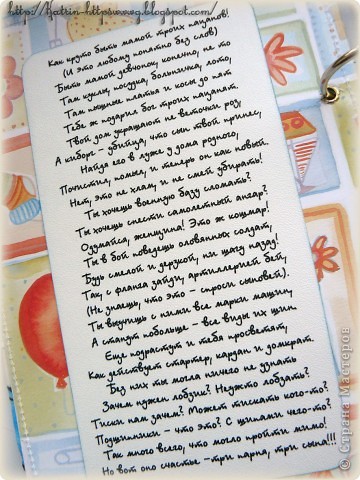 http://Katrin-httpswwwg.blogspot.com/
Как круто быть мамой троих пацанов!
(И это любому понятно без слов)
Быть мамой девчонок, конечно, не то
Там куклы, посуда, больнички, лото,
Там пышные платья и косы до пят
Тебе ж подарил бог троих пацанят.
Твой дом украшают не веточки роз,
А киборг - убийца, что сын твой принес,
Найдя его в луже у дома родного,
Почистил, помыл, и теперь он как новый.
Нет, это не хлам, и не смей убирать!
Ты хочешь военную базу сломать?
Ты хочешь снести самолетный ангар?
Одумайся, женщина! Это ж кошмар!
Ты в бой поведешь оловянных солдат,
Будь смелой и дерзкой, ни шагу назад!
Так, с фланга зайди, артиллерией бей,
(Не знаешь, что это - спроси сыновей).
Ты выучишь с ними все марки машин,
А станут побольше - все виды их шин
Еще подрастут и тебя просветят,
Как действует стартер, кардан и домкрат.
Без них ты могла ничего не узнать
Зачем нужен лобзик? Неужто лобзать?
Тиски нам зачем? Может тискать кого-то?
Подшипники - что это? С шипами чего-то?
Так много всего, что могло пройти мимо!
Но вот оно счастье - три парня, три сына!!!
© Страна Мастеров